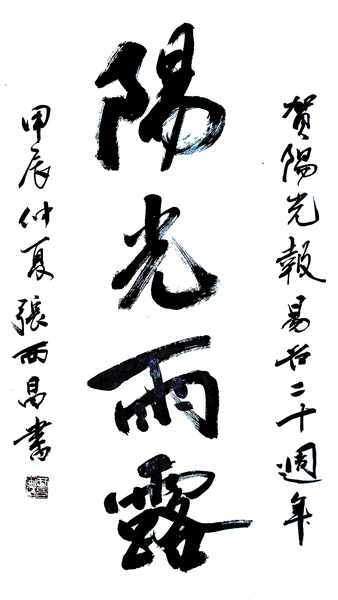 賀陽光報易名二十週年
陽光雨露
甲辰仲夏張雨昌書